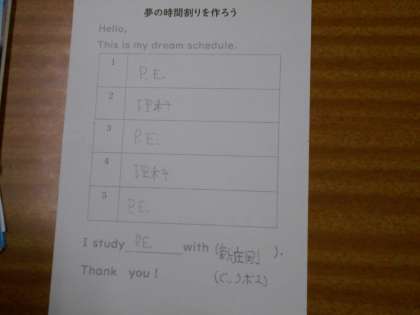 夢の時間割りを作ろう
Hello,
This is my dream schedule.
1 P.E.
2 理科
3 P.E.
4 理科
5 P.E.
I study P.E. with (新庄剛).
Thank you!
(ビッグボス)